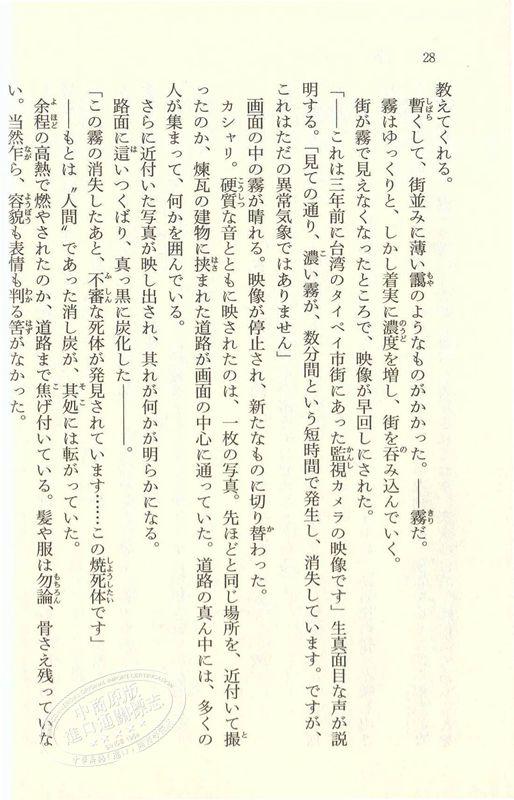 28
教えてくれる。
暫くして、街並みに薄い靄のようなものがかかった。――霧だ。
霧はゆっくりと、しかし着実に濃度を増し、街を呑み込んでいく。
街が霧で見えなくなったところで、映像が早回しにされた。
「――これは三年前に台湾のタイペイ市街にあった監視カメラの映像です」生真面目な声が説
明する。「見ての通り、濃い霧が、数分間という短時間で発生し、消失しています。ですが、
これはただの異常気象ではありません」
画面の中の霧が晴れる。映像が停止され、新たなものに切り替わった。
カシャリ。硬質な音とともに映されたのは、一枚の写真。先ほどと同じ場所を、近付いて撮
ったのか、煉瓦の建物に挟まれた道路が画面の中心に通っていた。道路の真ん中には、多くの
人が集まって、何かを囲んでいる。
さらに近付いた写真が映し出され、其れが何かが明らかになる。
路面に這いつくばり、真っ黒に炭化した――。
「この霧の消失したあと、不審な死体が発見されています……この焼死体です」
――もとは〝人間〟であった消し炭が、其処には転がっていた。
余程の高熱で燃やされたのか、道路まで焦げ付いている。髪や服は勿論、骨さえ残っていな
い。当然乍ら、容貌も表情も判る筈がなかった。
中商原版
進口通關標志